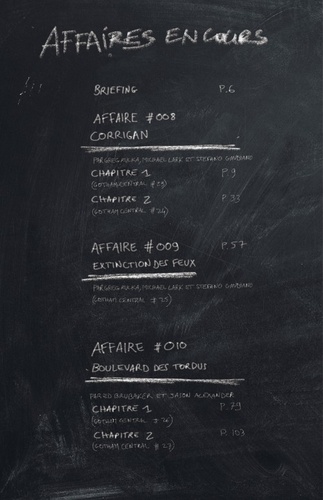 AFFAIRES EN COURS
BRIEFING P.6
AFFAIRE #008
CORRIGAN
PAR GREG RUCKA, MICHAEL LARK ET STEFANO GAUDIANO
CHAPITRE 1 P.9
(GOTHAM CENTRAL #23)
CHAPITRE 2 P.33
(GOTHAM CENTRAL #24)
AFFAIRE #009 P.57
EXTINCTION DES FEUX
PAR GREG RUCKA, MICHAEL LARK ET STEFANO GAUDIANO
(GOTHAM CENTRAL #25)
AFFAIRE #010
BOULEVARD DES TORDUS
PAR ED BRUBAKER ET JASON ALEXANDER
CHAPITRE 1 P.79
(GOTHAM CENTRAL #26)
CHAPITRE 2 P.103
(GOTHAM CENTRAL #27)